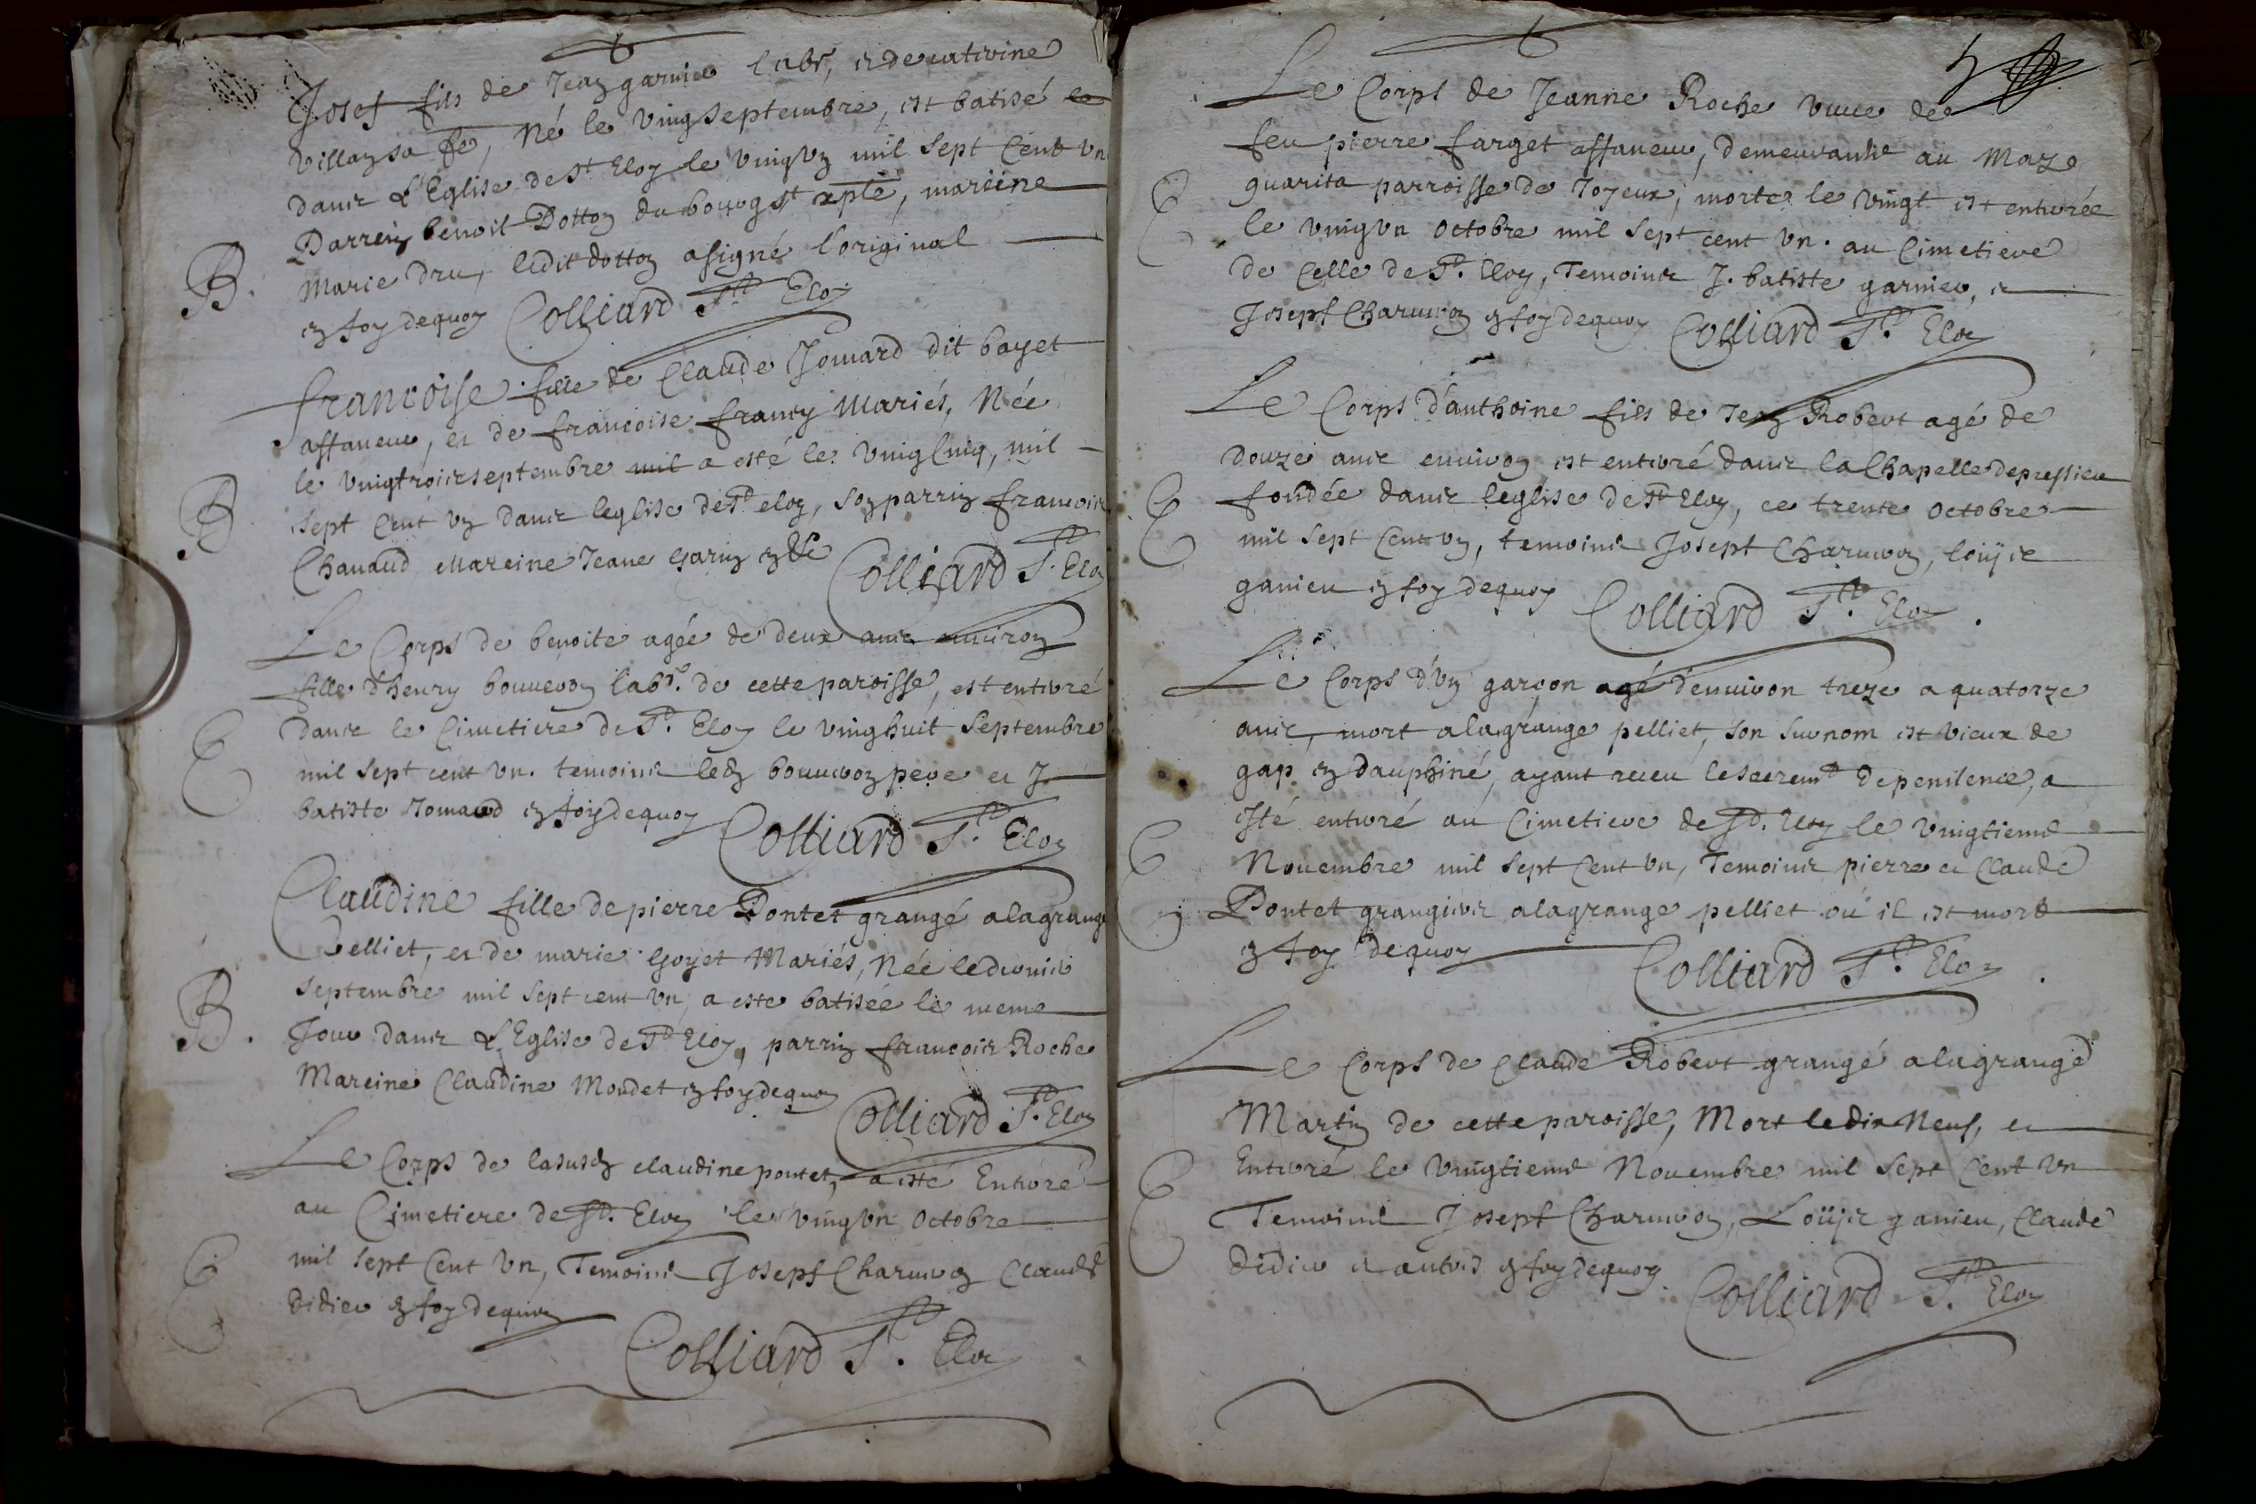 Josef fils de Jean garnier labr, et de catirine
Villan sa fe, Né le vingseptembre, est batisé
dans L'Eglise de St Eloy le vingun mil sept Cent un
Parrein benoit Dotton du bourg St xple, mareine
B.
Marie dru, ledit dotton a signé l'original
en foy dequoy Colliard St Eloy
francoise fille de Claude Jomard dit bayet
affaneur, et de francoise francy Mariés, Née
le vingtroisseptembre mil a esté le vingcinq, mil
B
sept Cent un dans leglise de St eloy, son parrin francois
Chanaud Mareine Jeane garin en &c Colliard St Eloy
Le Corps de benoite agée de deux ans environ
fille d'henry bouveron labr. de cette paroisse, est entirré
E
dans le Cimetiere de St Eloy le vinghuit Septembre
mil sept cent un. temoins led bouveron pere et J.
batiste Jomard en foy dequoy Colliard St Eloy
Claudine fille de pierre Pontet grangé a la grange
Pelliet, et de marie goyet Mariés, Née le dernier
Septembre mil sept cent un, a este batisée le meme
B.
Jour dans L'Eglise de St Eloy, parrin francois Roche
Mareine Claudine Moudet en foy dequoy Colliard St Eloy
Le Corps de la susd claudine pontet, a esté Entirré
au Cimetiere de St. Eloy le vingun Octobre
E
mil sept Cent un, Temoins Joseph Charveron Claude
didier en foy dequoy
Colliard St. Eloy
5
Le Corps de Jeanne Roche veuve de
feu pierre farget affaneur, demeurante au Maz
E
guarita parroisse de Joyeux, morte le vingt est entirrée
le vingun Octobre mil sept cent un. au Cimetiere
de Celle de St. Eloy, Temoins J. batiste garnier, et
Joseph Charveron en foy dequoy Colliard St. Eloy
Le Corps d'anthoine fils de Jean Robert agé de
douze ans environ est entirré dans la Chapelle de pressieu
E
fondée dans leglise de St Eloy, ce trente Octobre
mil sept Cent un, temoins Joseph Charveron, loüis
ganieu en foy dequoy Colliard St. Eloy.
Le Corps d'un garçon agé d'environ treze a quatorze
ans, mort a la grange pelliet, son surnom est vieux de
gap en dauphiné, ayant receu le sacremt de penitence, a
esté entirré au Cimetiere de St. Eloy le vingtieme
E
Novembre mil sept Cent un, Temoins pierre et Claude
Pontet grangiers a la grange pelliet ou il est mort
en foy dequoy Colliard St. Eloy.
Le Corps de Claude Robert grangé a la grange
Martin de cette paroisse, Mort le dix Neuf, et
E
Entirré le vingtieme Novembre mil sept Cent un
Temoins Joseph Charveron, Loüis ganieu, Claude
didier et autres en foy dequoy. Colliard St. Eloy